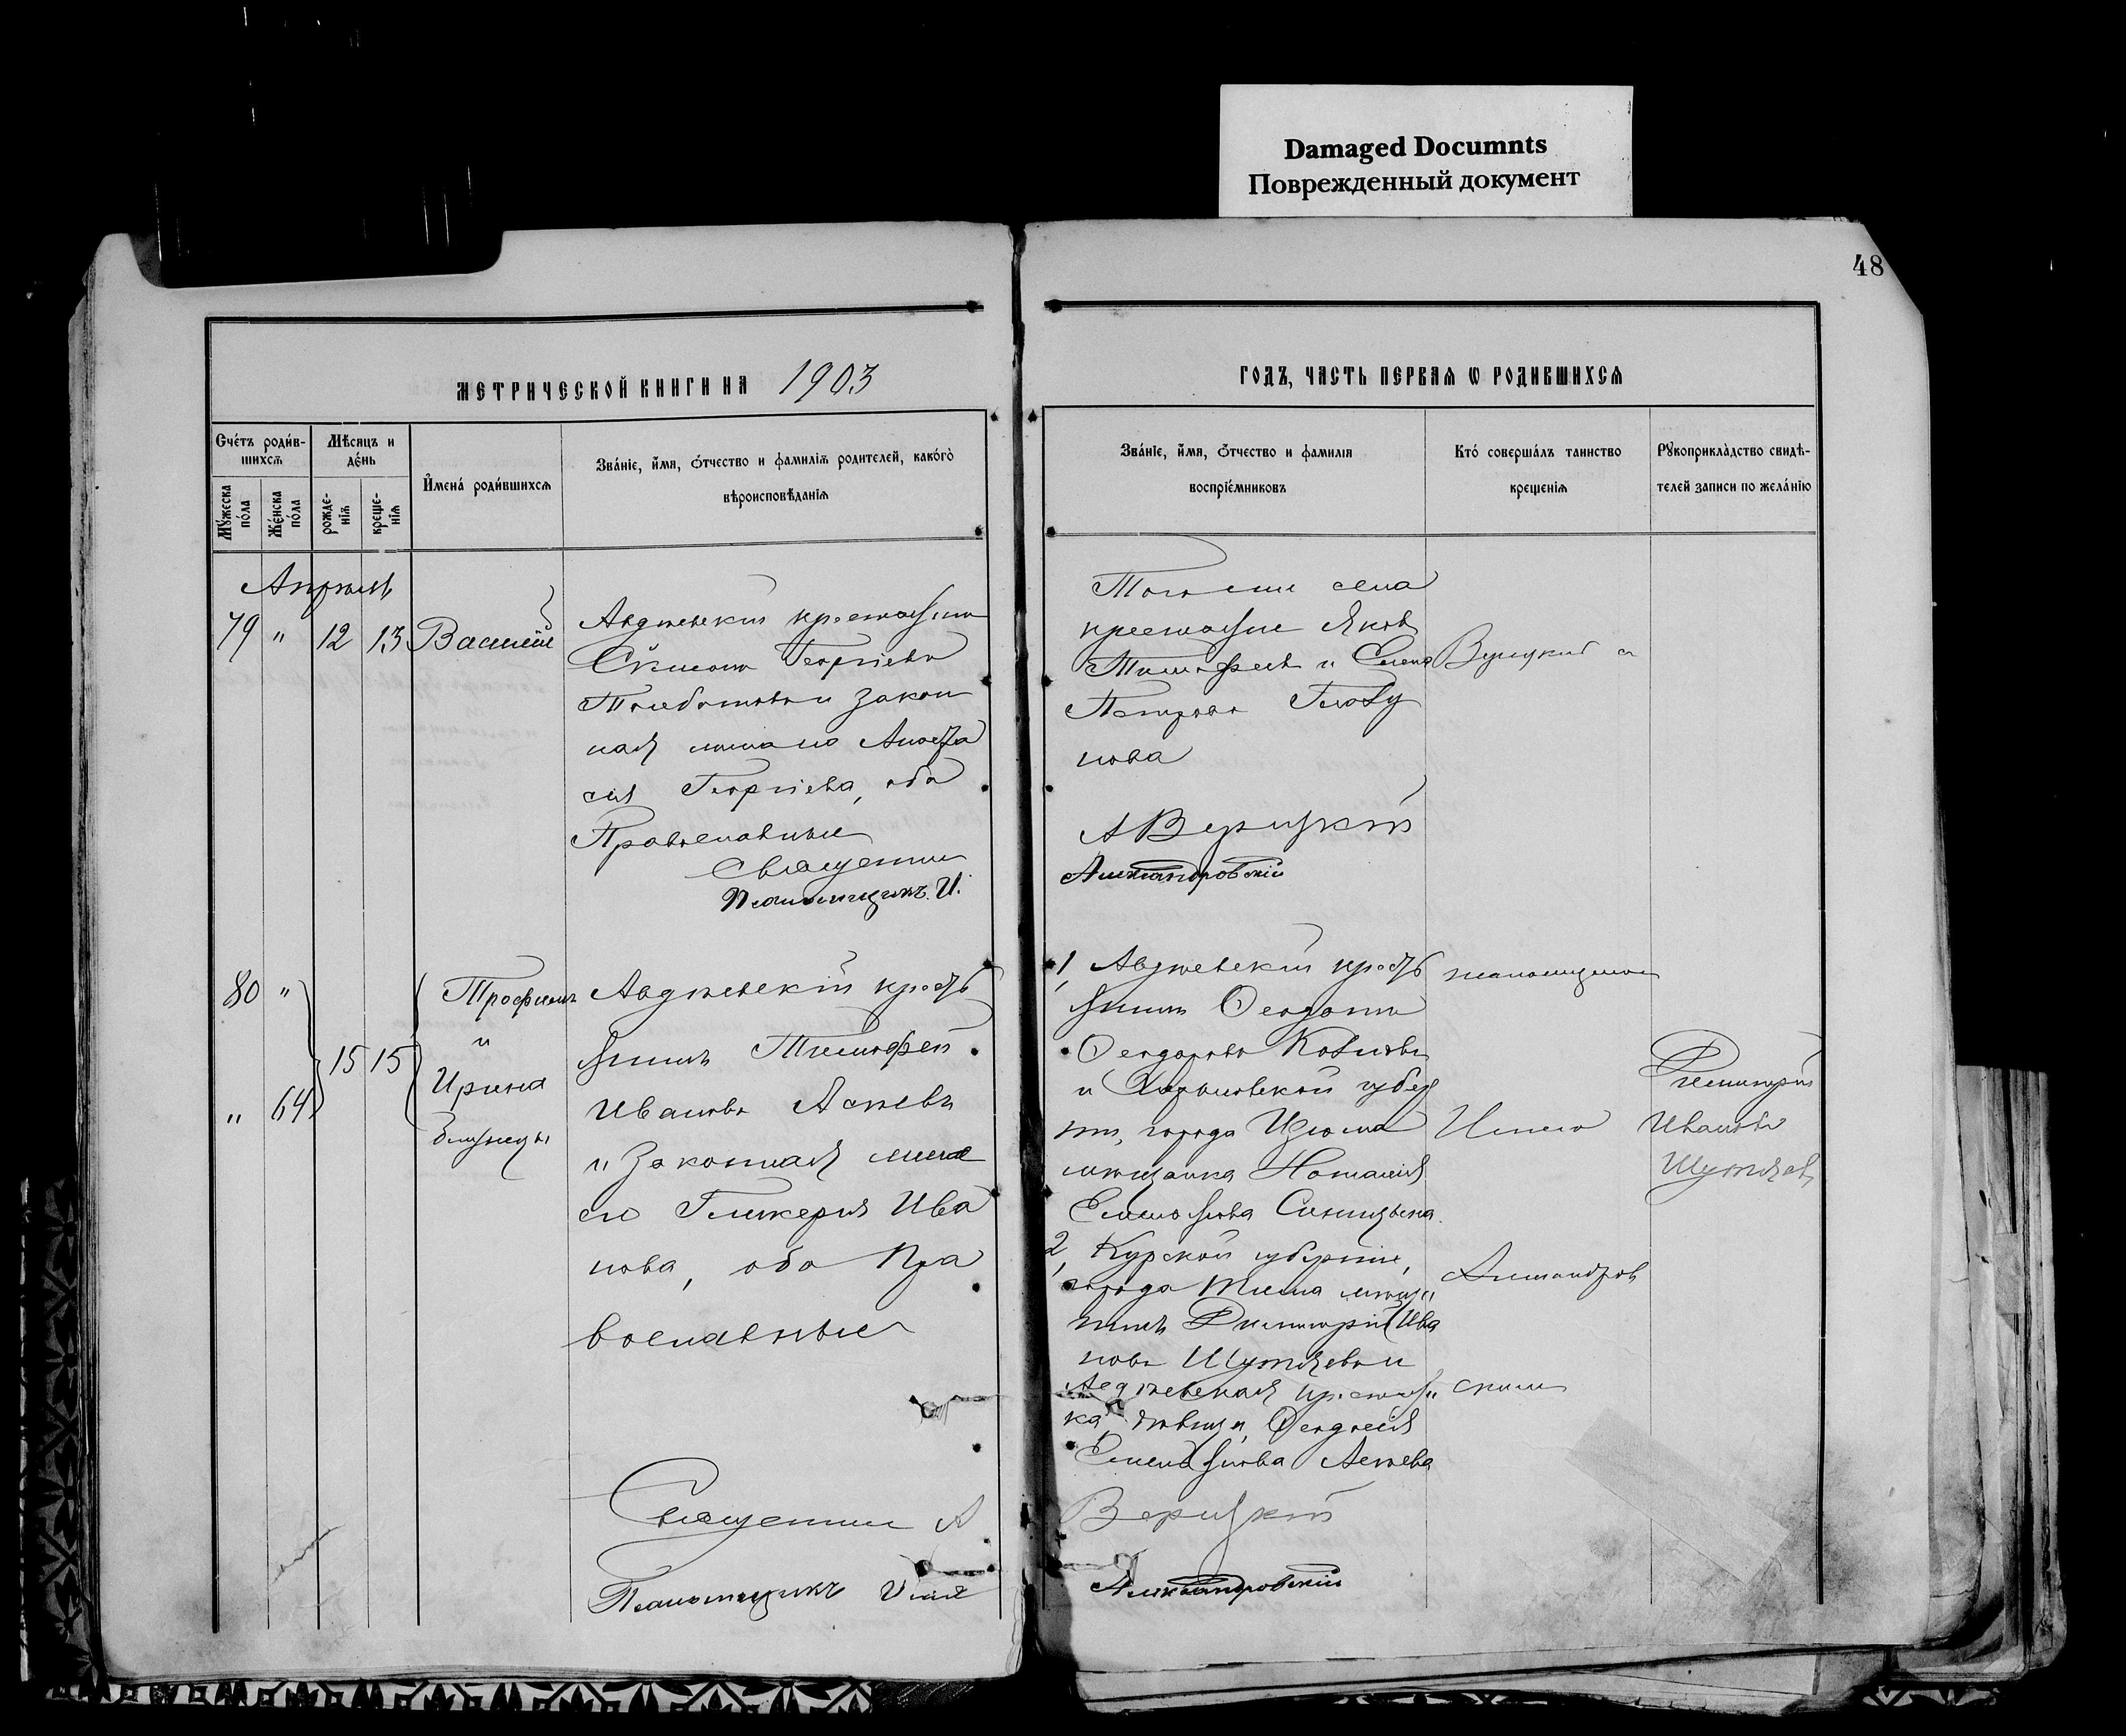 Damaged Documnts
Поврежденный документ
48
МЕТРИЧЕСКОЙ КНИГИ НА 1903
ГОДЪ, ЧАСТЬ ПЕРВАЯ Ѡ РОДИВШИХСЯ
Счётъ роди́в-
шихсѧ
Мѣсяцъ и
де́нь
Мꙋ́жеска
по́ла
Же́нска
по́ла
рожде-
нїѧ
креще-
нїѧ
И҆мена́ роди́вшихсѧ
Зва́нїе, и҆́мѧ, ѻ҆́тчество и фамилїѧ родителей, како́гѡ
вѣроисповѣ́данїѧ
Зва́нїе, и҆́мѧ, ѻ҆́тчество и фамилїѧ
воспрїе́мниковъ
Кто́ соверша́лъ таинство
крещенїѧ
Рꙋкоприкла́дство свидѣ-
телей записи по жела́нїю
Апрель
79 " 12 13 Василій
Авдѣевскій крестьянин
Георгіевъ
и закон
ная жена его Анаста
сія Георгіева, оба
Православные
Священник
Псаломщикъ. И.
Того же села
крестьяне Яков
Тимофеев и Елена
Петрова
нова
А Верицкій
Александровскій
Верицкій с
80 "
" 64
15 15
Трофимъ
и
Ирина
близнецы
Авдѣевскій крестья
нинъ Тимофей
Ивановъ Асѣевъ
и законная жена
его Гликерія Ива
нова, оба Пра
вославные
Священник А
Псаломщикъ Илія
1, Авдѣевскій крестья
нинъ Феодотъ
Феодоровъ
и Харьковской губер
ніи, города Изюма
мѣщанка Наталія
Емельянова
2, Курской губерніи,
города Тима мѣща"
нинъ Димитрій Ива
новъ Шутяевъ и
Авдѣевская крестьян"
ка, дѣвица, Феодосія
Емельянова Асѣева
Верицкій
Александровскій
псаломщиком
Иліею
Александров
скимъ
Димитрій
Ивановъ
Шутяевъ